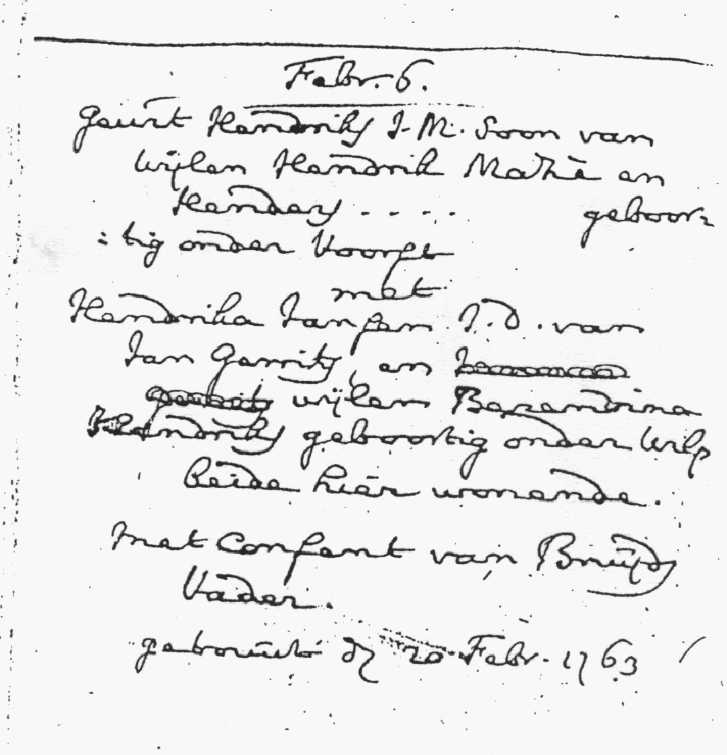 Febr. 6.
Geurt Hendriks J. M. Soon van
wijlen Hendrik Mathè en
Henders . . . . . geboor=
=tig onder Voorst
met
Hendrika Jansen J. d. van
Jan Gerrits, en
wijlen Berendina
Hendriks geboortig onder Wilp
beide hier wonende.
Met Consent van Bruijds
Vader.
getrouwt d 20 Febr. 1763